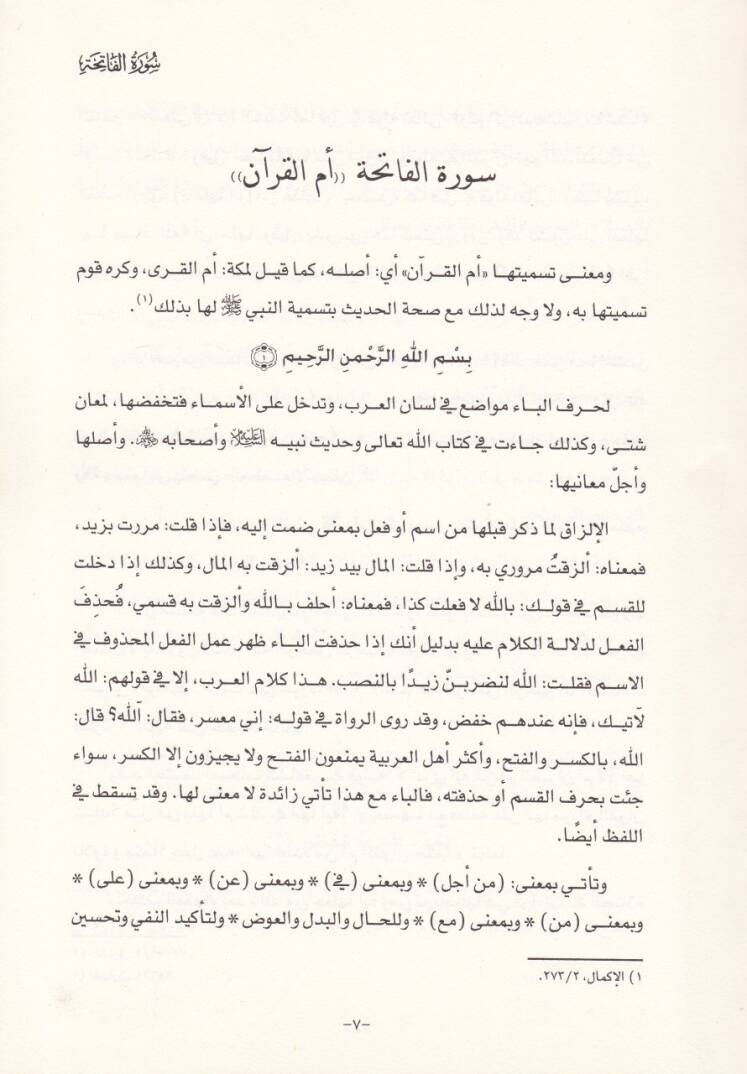 سُورَةُ الفَاتِحَةِ
سورة الفاتحة ((أم القرآن))
ومعنى تسميتها «أم القرآن» أي: أصله، كما قيل لمكة: أم القرى، وكره قوم
تسميتها به، ولا وجه لذلك مع صحة الحديث بتسمية النبي ﷺ لها بذلك(١).
بِسْمِ اللهِ الرَّحْمنِ الرَّحِيمِ ۝١
لحرف الباء مواضع في لسان العرب، وتدخل على الأسماء فتخفضها، لمعان
شتى، وكذلك جاءت في كتاب الله تعالى وحديث نبيه عليه السلام وأصحابه. وأصلها
وأجلّ معانيها:
الإلزاق لما ذكر قبلها من اسم أو فعل بمعنى ضمت إليه، فإذا قلت: مررت بزيد،
فمعناه: ألزقتُ مروري به، وإذا قلت: المال بيد زيد: ألزقت به المال، وكذلك إذا دخلت
للقسم في قولك: بالله لا فعلت كذا، فمعناه: أحلف بالله وألزقت به قسمي، فحُذِفَ
الفعل لدلالة الكلام عليه بدليل أنك إذا حذفت الباء ظهر عمل الفعل المحذوف في
الاسم فقلت: الله لنضربنّ زيدًا بالنصب. هذا كلام العرب، إلا في قولهم: الله
لآتيك، فإنه عندهم خفض، وقد روى الرواة في قوله: إني معسر، فقال: آلله؟ قال:
الله، بالكسر والفتح، وأكثر أهل العربية يمنعون الفتح ولا يجيزون إلا الكسر، سواء
جئت بحرف القسم أو حذفته، فالباء مع هذا تأتي زائدة لا معنى لها. وقد تسقط في
اللفظ أيضًا.
وتأتي بمعنى: (من أجل) * وبمعنى (في) * وبمعنى (عن) * وبمعنى (على) *
وبمعنى (من) * وبمعنى (مع) * وللحال والبدل والعوض * ولتأكيد النفي وتحسين
١) الإكمال، ٢/ ٢٧٣.
-٧-